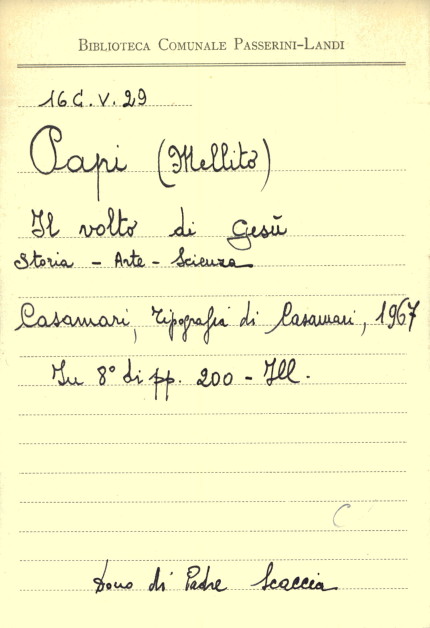 BIBLIOTECA COMUNALE PASSERINI-LANDI
16 C. V. 29
Papi (Mellito)
Il volto di Gesù
Storia - Arte - Scienza
Casamari, Tipografia di Casamari, 1967
In 8° di pp. 200 - Ill.
C
Dono di Padre Scaccia